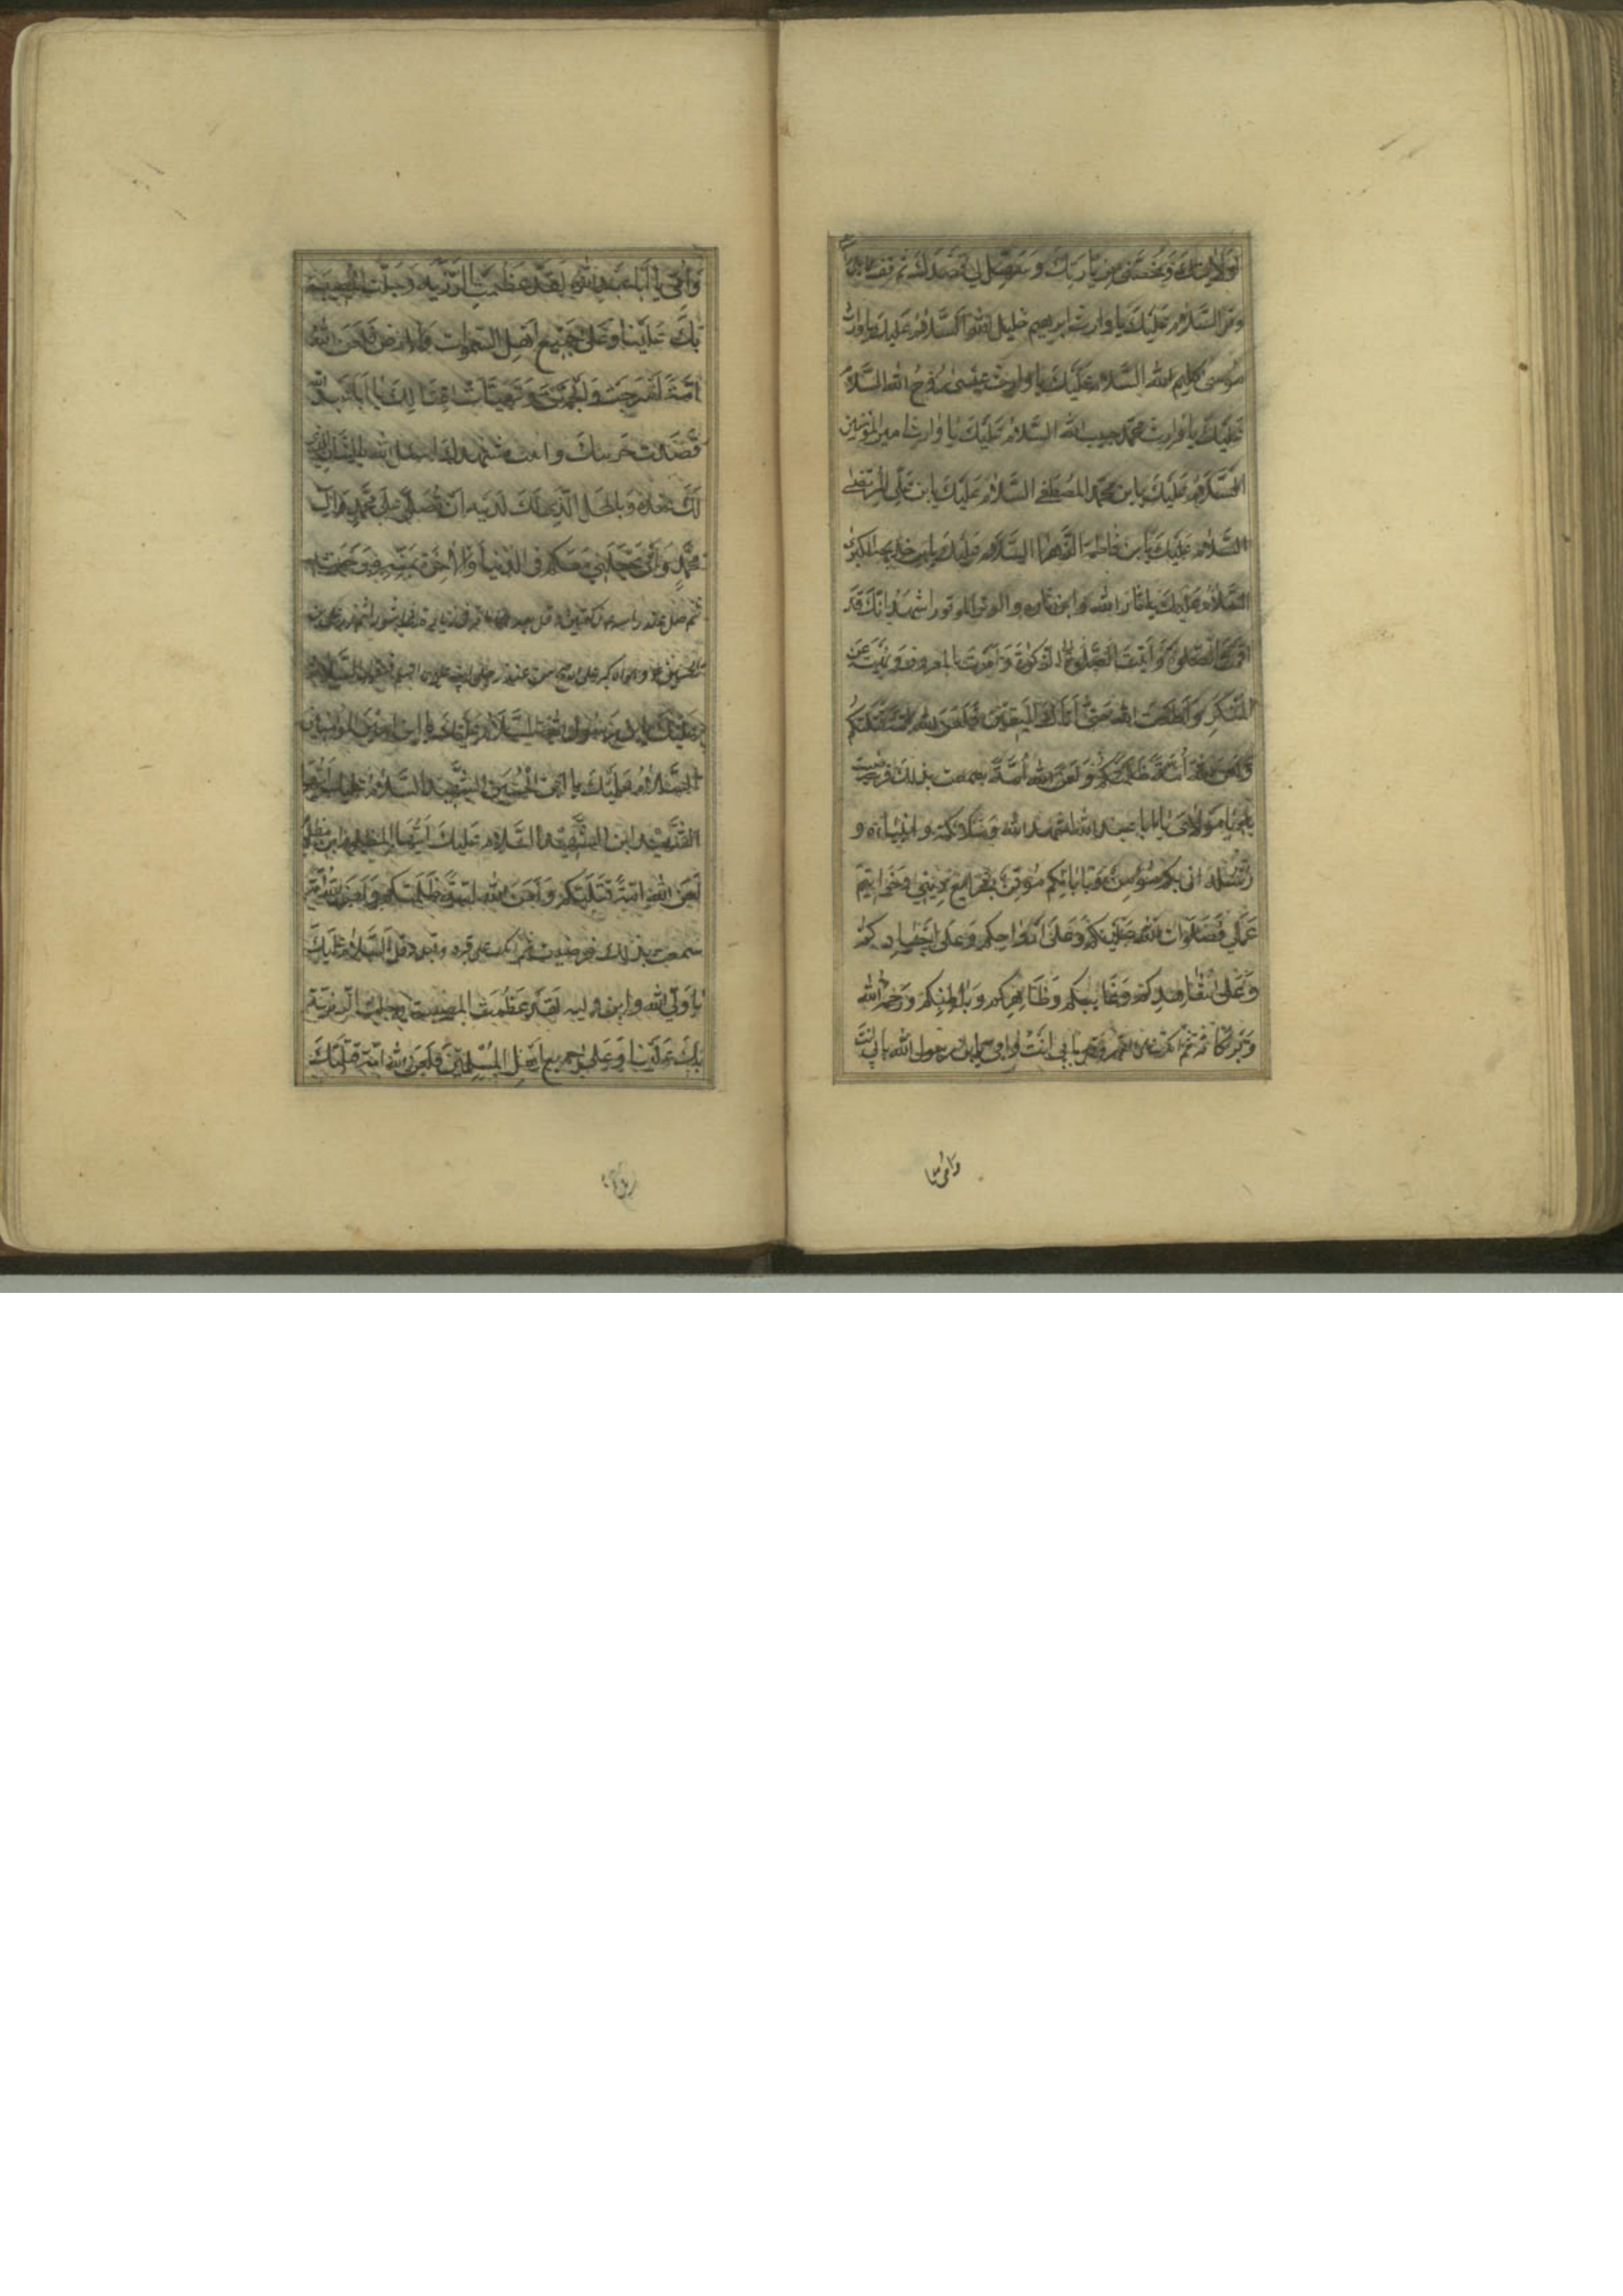 لولايتك وخصني بزيارتك وسهل لي قصدك ثم
وقل السلام عليك يا وارث ابراهيم خليل الله السلام عليك يا وارث
موسى كليم الله السلام عليك يا وارث عيسى روح الله السلام
عليك يا وارث محمد حبيب الله السلام عليك يا وارث امير المؤمنين
السلام عليك يا بن محمد المصطفى السلام عليك يا بن علي المرتضى
السلام عليك يا بن فاطمة الزهرا السلام عليك يا بن خديجة الكبرى
السلام عليك يا ثار الله وابن ثاره والوتر الموتور اشهد انك قد
اقمت الصلوة وآتيت الزكوة وامرت بالمعروف ونهيت عن
المنكر واطعت الله حتى اتاك اليقين فلعن الله امة قتلتكم
ولعن الله امة ظلمتكم ولعن الله امة سمعت بذلك فرضيت
به يا مولاى يا ابا عبد الله اشهد الله وملائكته وانبياءه و
رسله اني بكم مؤمن وبايابكم موقن بشرايع ديني وخواتيم
عملي فصلوات الله عليكم وعلى ارواحكم وعلى اجسادكم
وعلى شاهدكم وغايبكم وظاهركم وباطنكم ورحمة الله
وبركاته ثم وقل بابي انت وامي يا بن رسول الله بابي انت
وامي يا
وامي يا ابا عبد الله لقد عظمت الرزية وجلت المصيبة
بك علينا وعلى جميع اهل السموات والارض فلعن الله
امة اسرجت والجمت وتهيأت لقتالك يا ابا عبد الله
قصدت حرمك واتيت مشهدك اسئل الله بالشان الذي
لك عنده وبالمحل الذي لك لديه ان تصلي على محمد وآل
محمد وان يجعلني معكم في الدنيا والاخرة
ثم صل عند راسه ركعتين
عليك يا بن رسول الله السلام عليك يا بن امير المؤمنين
السلام عليك يا ابن الحسين الشهيد السلام عليك ايها
الشهيد ابن الشهيد السلام عليك ايها المظلوم ابن المظلوم
لعن الله امة قتلتكم ولعن الله امة ظلمتكم ولعن الله امة
سمعت بذلك فرضيت به ثم قبره وقل السلام عليك
يا ولي الله وابن وليه لقد عظمت المصيبة وجلت الرزية
بك علينا وعلى جميع اهل المسلمين فلعن الله امة قتلتك